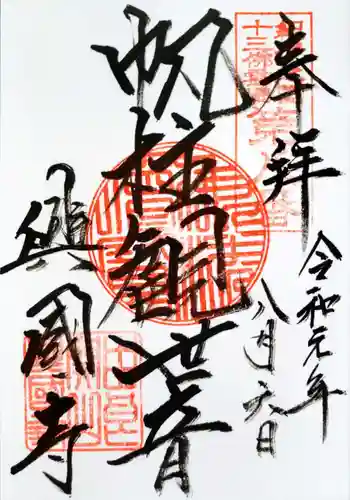 奉拝
令和元年
八月六日
帆柱観世音
興國寺